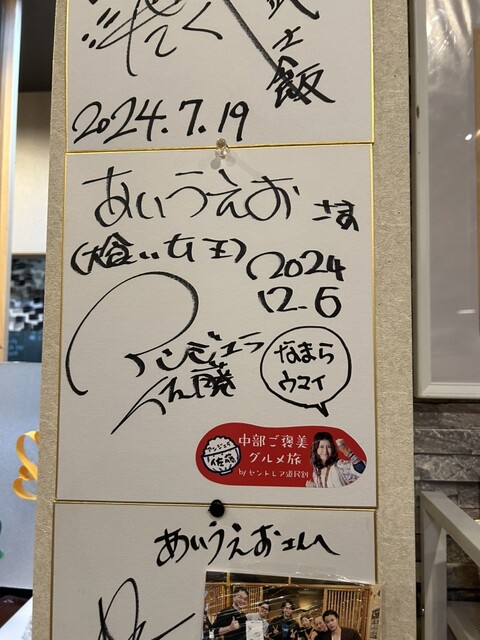 武士飯
2024.7.19
あいうえお さま
(大食い女王)
2024
12.6
アンジェラ
佐藤
なまら
ウマイ
アンジェラ
佐藤
中部ご褒美
グルメ旅
by セントレア道民割
あいうえおさんへ